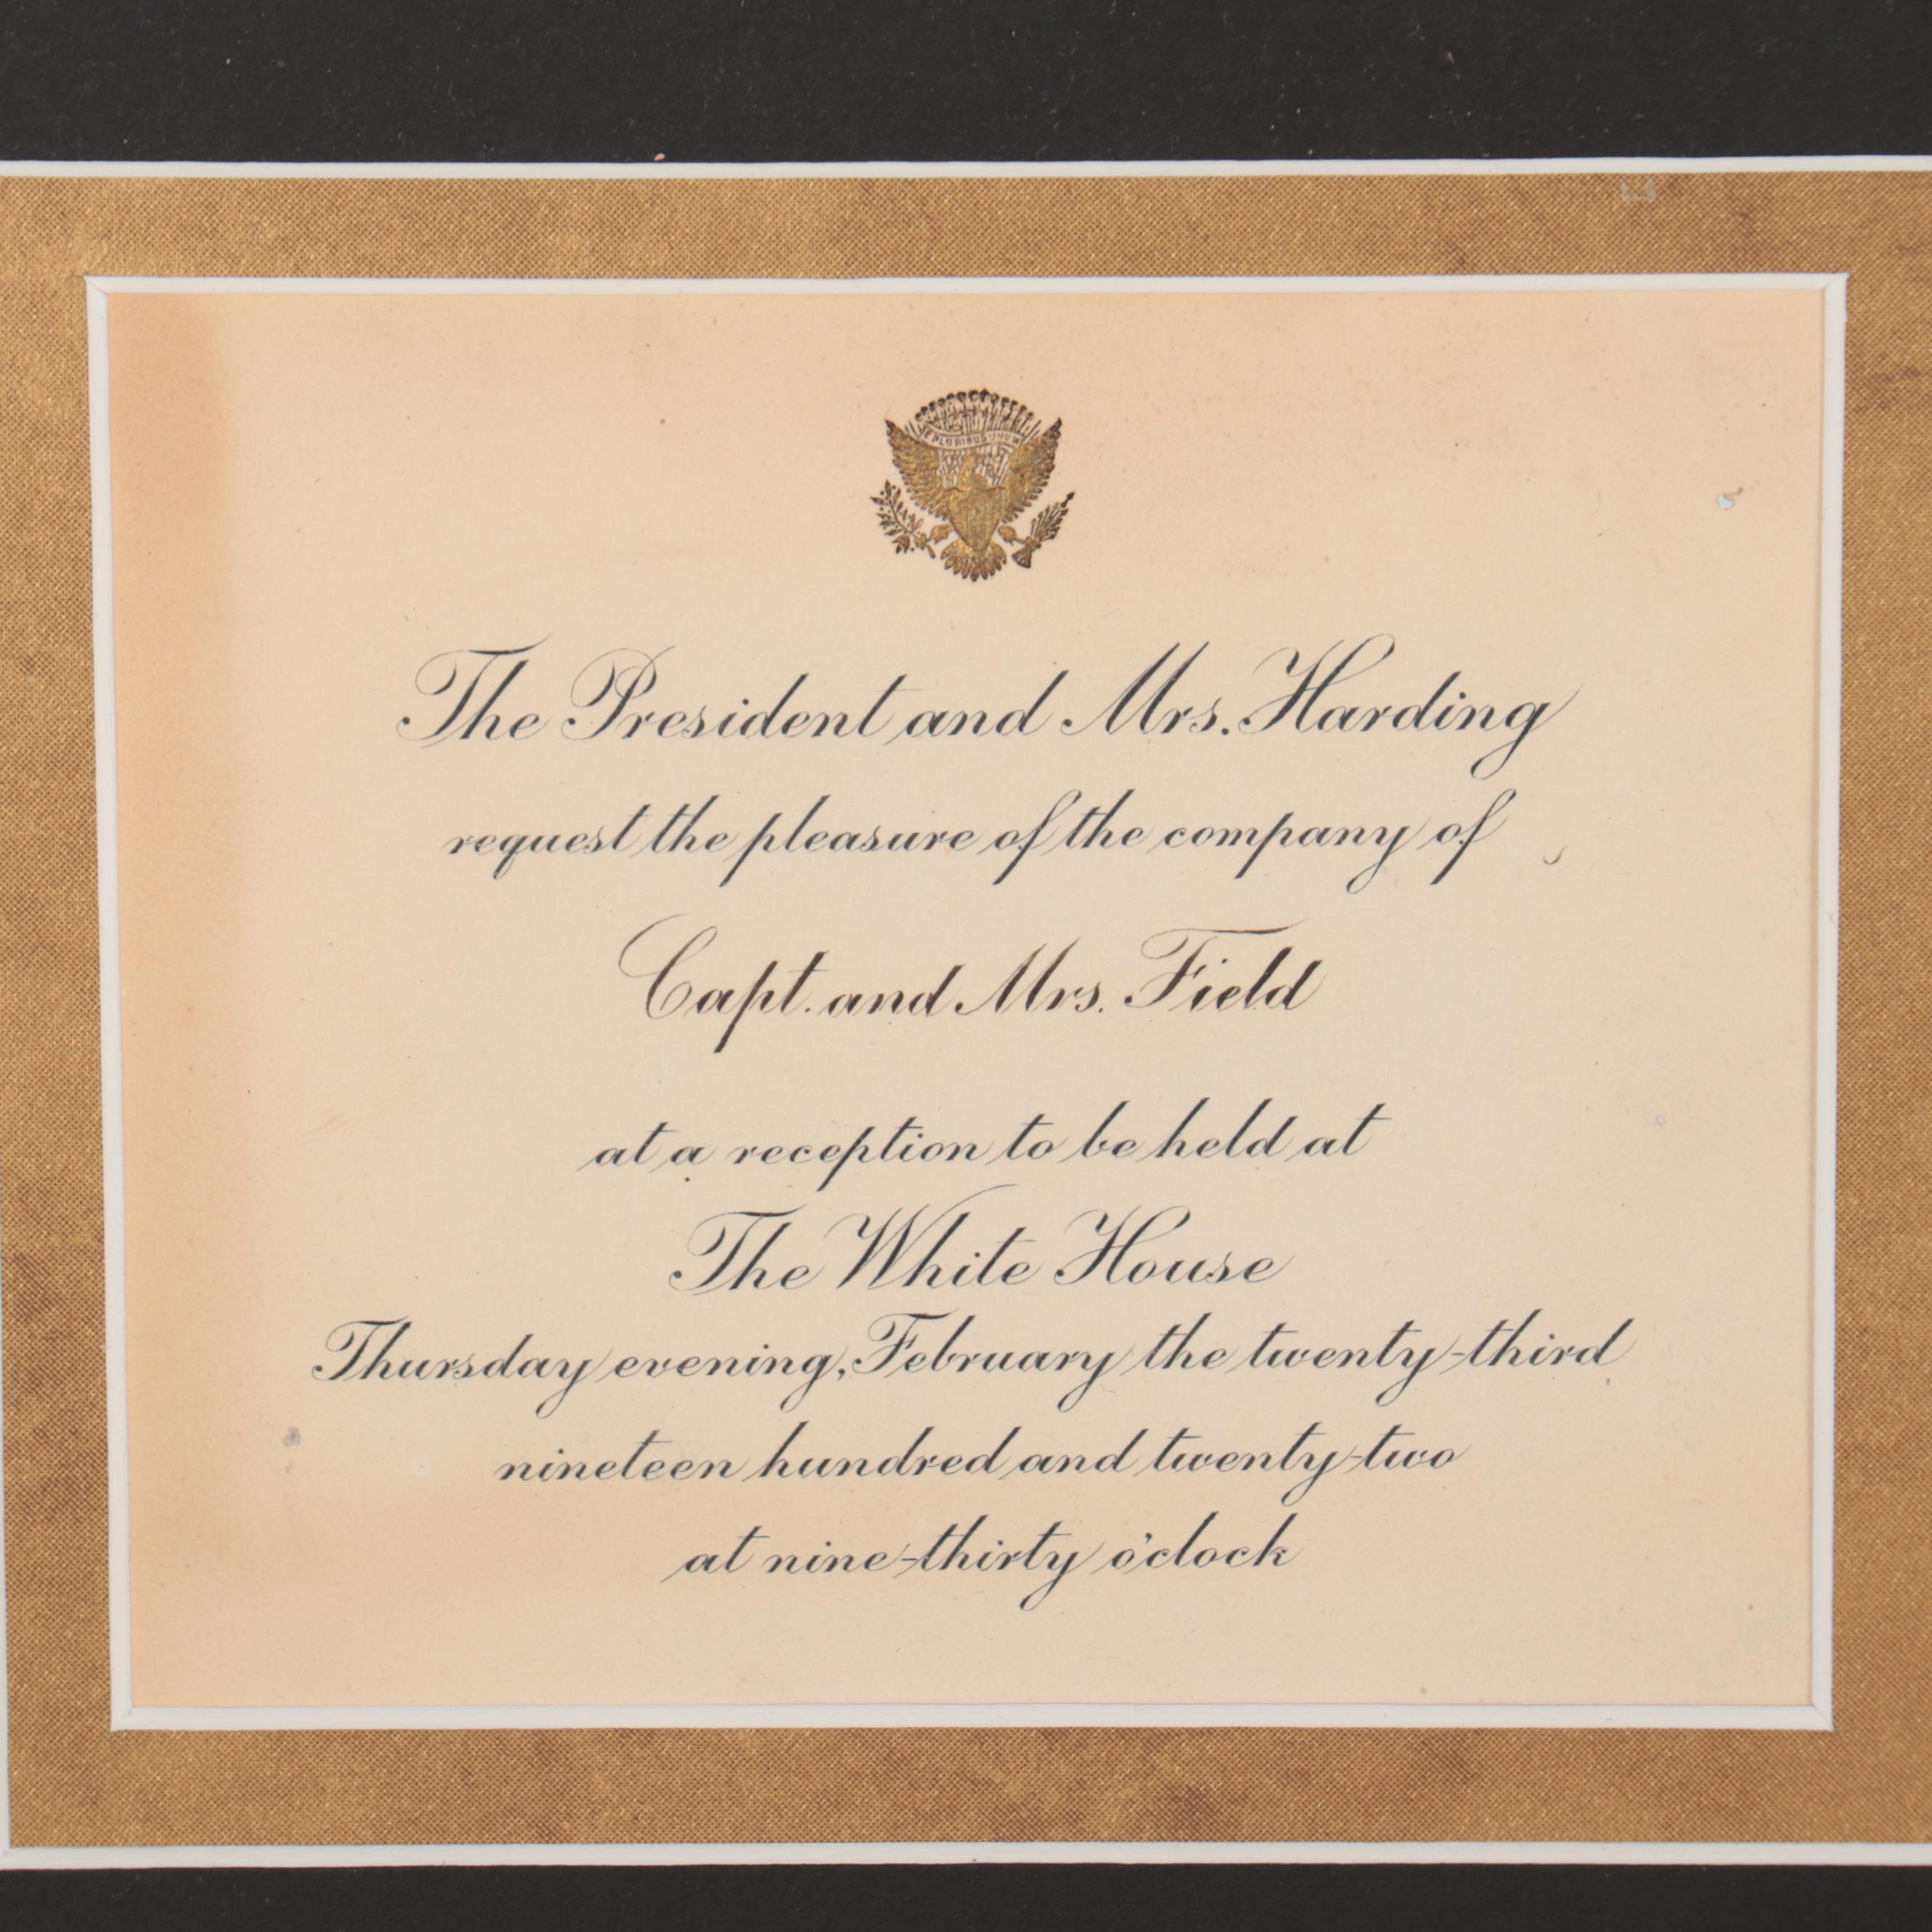 E PLURIBUS UNUM
The President and Mrs. Harding
request the pleasure of the company of
Capt. and Mrs. Field
at a reception to be held at
The White House
Thursday evening, February the twenty-third
nineteen hundred and twenty-two
at nine-thirty o'clock